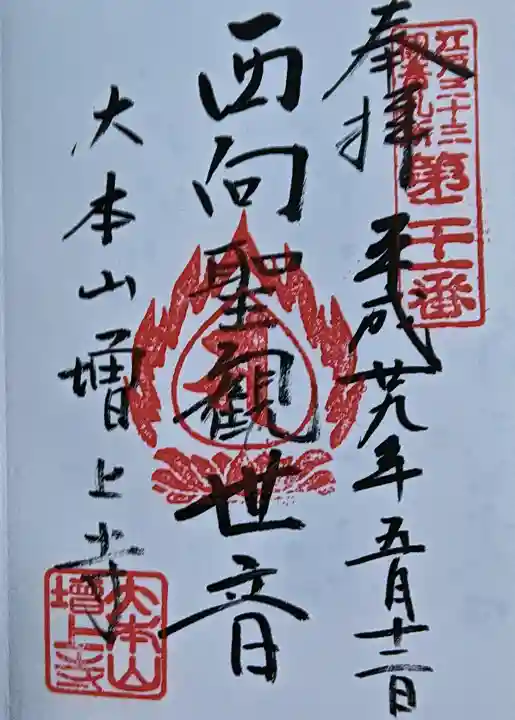 江戸三十三
観音札所
第二十一番
奉拝 平成廿九年五月十二日
西向聖観世音
大本山増上寺
大本山
増上寺